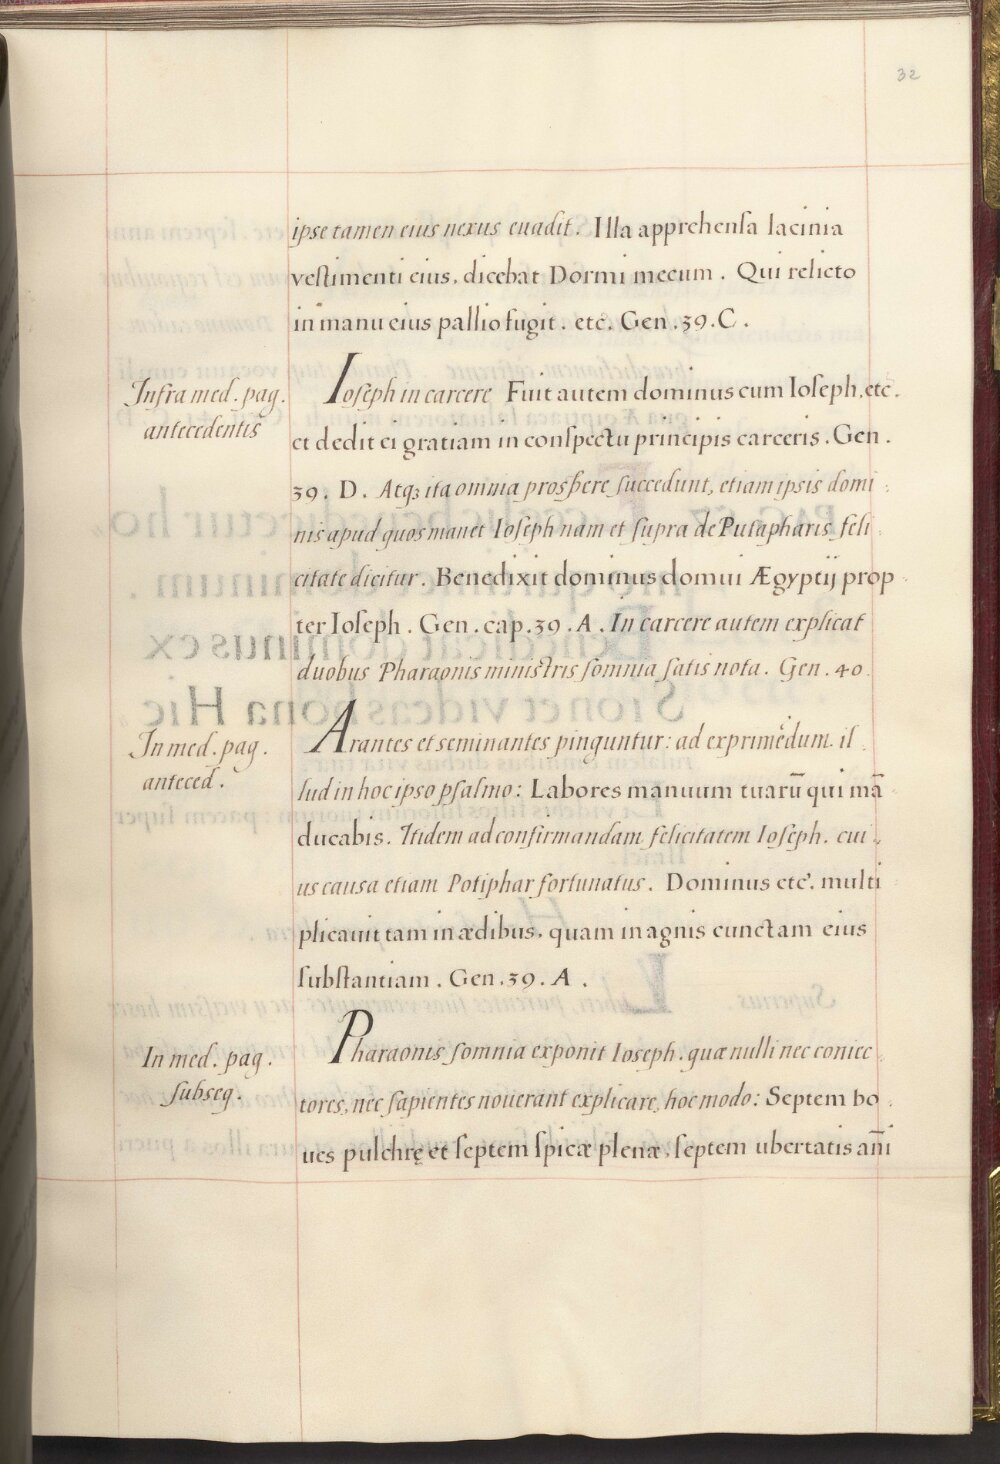 32
ipse tamen eius nexus euadit. Illa apprehensa lacinia
vestimenti eius, dicebat Dormi mecum. Qui relicto
in manu eius pallio fugit. etc. Gen. 39. C.
Infra med. pag.
antecedentis
Ioseph in carcere Fuit autem dominus cum Ioseph, etc.
et dedit ei gratiam in conspectu principis carceris. Gen.
39. D. Atq; ita omnia prospere succedunt, etiam ipsis domi
nis apud quos manet Ioseph nam et supra de Putapharis feli
citate dicitur. Benedixit dominus domui Ægyptij prop
ter Ioseph. Gen. cap. 39. A. In carcere autem explicat
duobus Pharaonis ministris somnia satis nota. Gen. 40.
In med. pag.
anteced.
Arantes et seminantes pinguntur: ad exprimēdum il
lud in hoc ipso psalmo: Labores manuum tuarū qui mā
ducabis. Itidem ad confirmandam felicitatem Ioseph. cui
us causa etiam Potiphar fortunatus. Dominus etc. multi
plicauit tam in ædibus, quam in agnis cunctam eius
substantiam. Gen. 39. A.
In med. pag.
subseq.
Pharaonis somnia exponit Ioseph. quæ nulli nec coniec
tores, nec sapientes nouerant explicare, hoc modo: Septem bo
ues pulchrę et septem spicæ plenæ, septem ubertatis an̄i